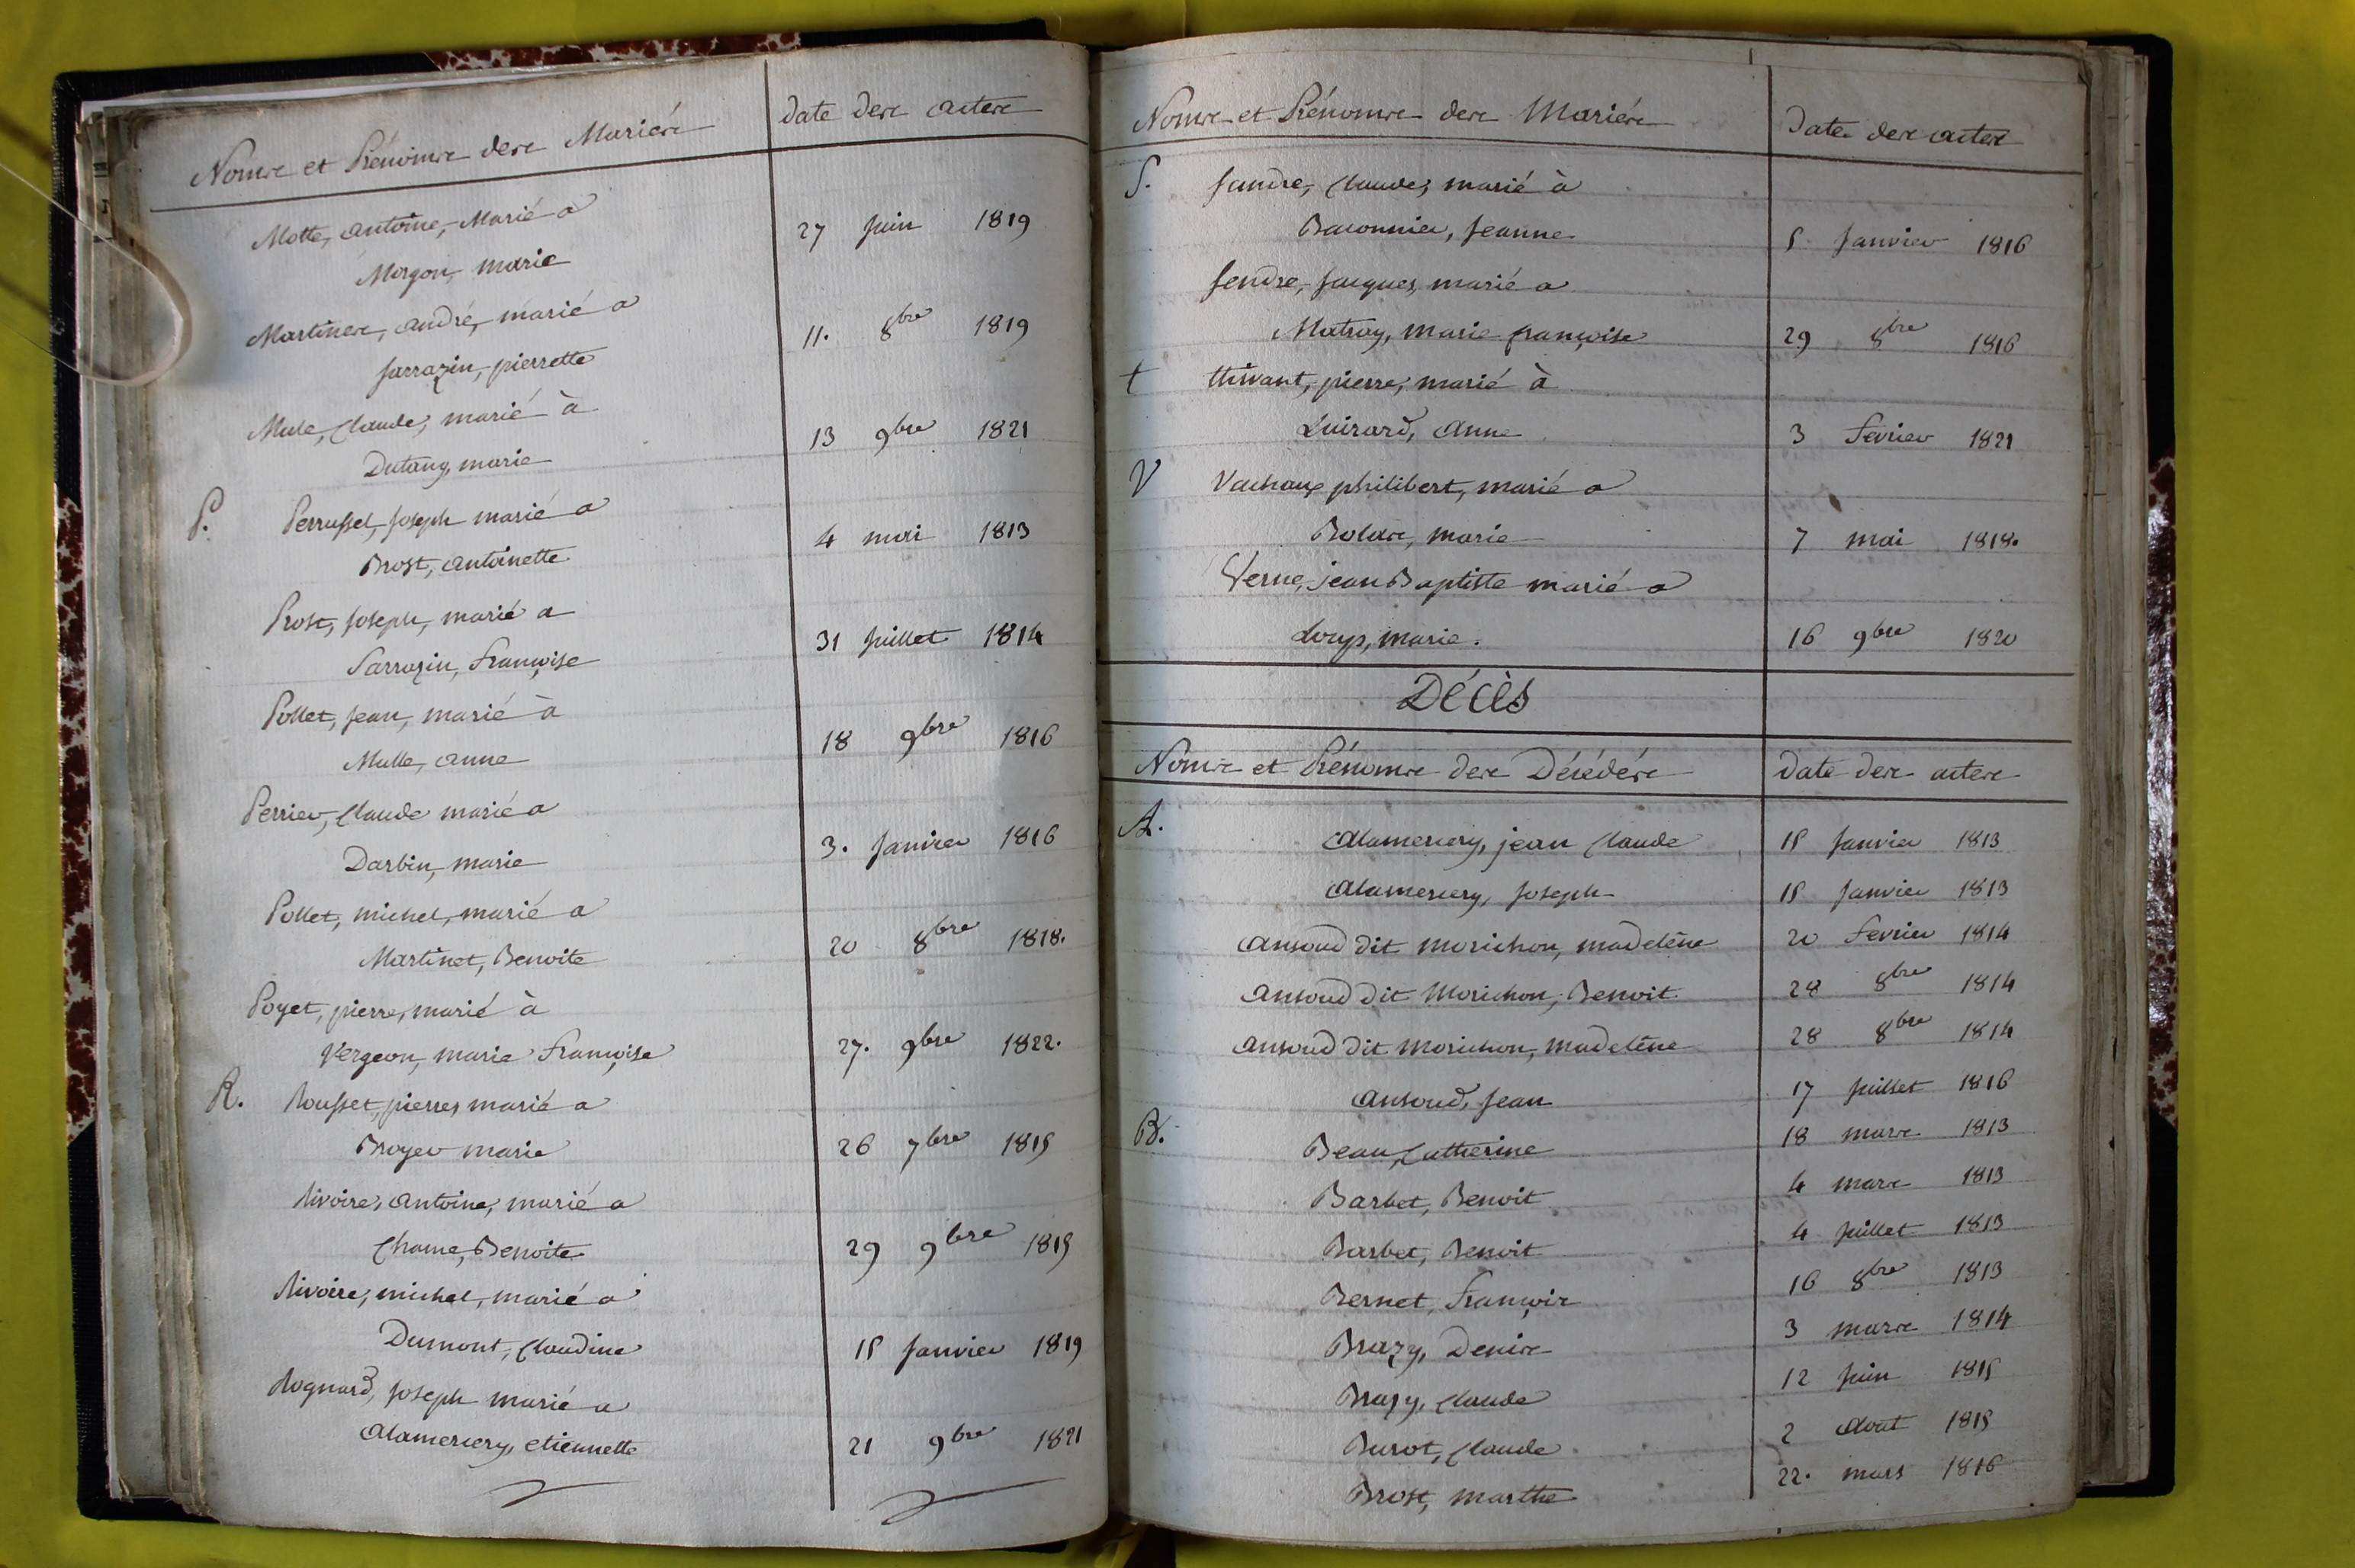 Noms et Prénoms des Mariés Date des actes
Motte, antoine, Marié a
Morgon, marie 27 Juin 1819
Martines, andré, marié a
Sarrazin, pierrette 11. 8bre 1819
Mule, Claude, marié à
Dutang, marie 13 9bre 1821
P. Perrussel, Joseph marié a
Brost, antoinette 4 mai 1813
Prost, Joseph, marié a
Sarrazin, Françoise 31 Juillet 1814
Pollet, Jean, marié à
Mulle, anne 18 9bre 1816
Perrier, Claude marié a
Darbin, marie 3. Janvier 1816
Pollet, michel, marié a
Martinet, Benoite 20 8bre 1818.
Poyet, pierre, marié à
Vergeon, marie Françoise 27. 9bre 1822.
R. Rousset, pierre, marié a
Broyer marie 26 7bre 1815
Rivoire, Antoine, marié a
Chame, Benoite 29 9bre 1815
Rivoire, michel, marié a
Dumont, Claudine 15 Janvier 1819
Rognard, Joseph marié a
Alamercery, etiennette 21 9bre 1821
Noms et Prénoms des Mariés Date des actes
S. Sandre, Claude, marié à
Baconnier, Jeanne 5 Janvier 1816
Sendre, Jacques, marié a
Matray, marie françoise 29 8bre 1816
t thivant, pierre, marié à
Luirard, Anne 3 Fevrier 1821
V Vachaux philibert, marié a
Bolare, marie 7 mai 1818.
Verne, jean Baptiste marié a
Loup, marie. 16 9bre 1820
Décès
Noms et Prénoms des Décédés Date des actes
A. Alamercery, jean Claude 15 Janvier 1813
Alamercery, Joseph 15 Janvier 1813
Ansoud dit morichon, madelêne 20 Fevrier 1814
Ansoud dit Morichon, Benoit 28 8bre 1814
Ansoud dit morichon, madelêne 28 8bre 1814
Ansoud, Jean 17 Juillet 1816
B. Beau, Catherine 18 mars 1813
Barbet, Benoit 4 mars 1813
Barbet, Benoit 4 Juillet 1813
Bernet, François 16 8bre 1813
Brazy, Denis 3 mars 1814
Brazy, Claude 12 Juin 1815
Burot, Claude 2 Aout 1815
Brost, marthe 22. mars 1816